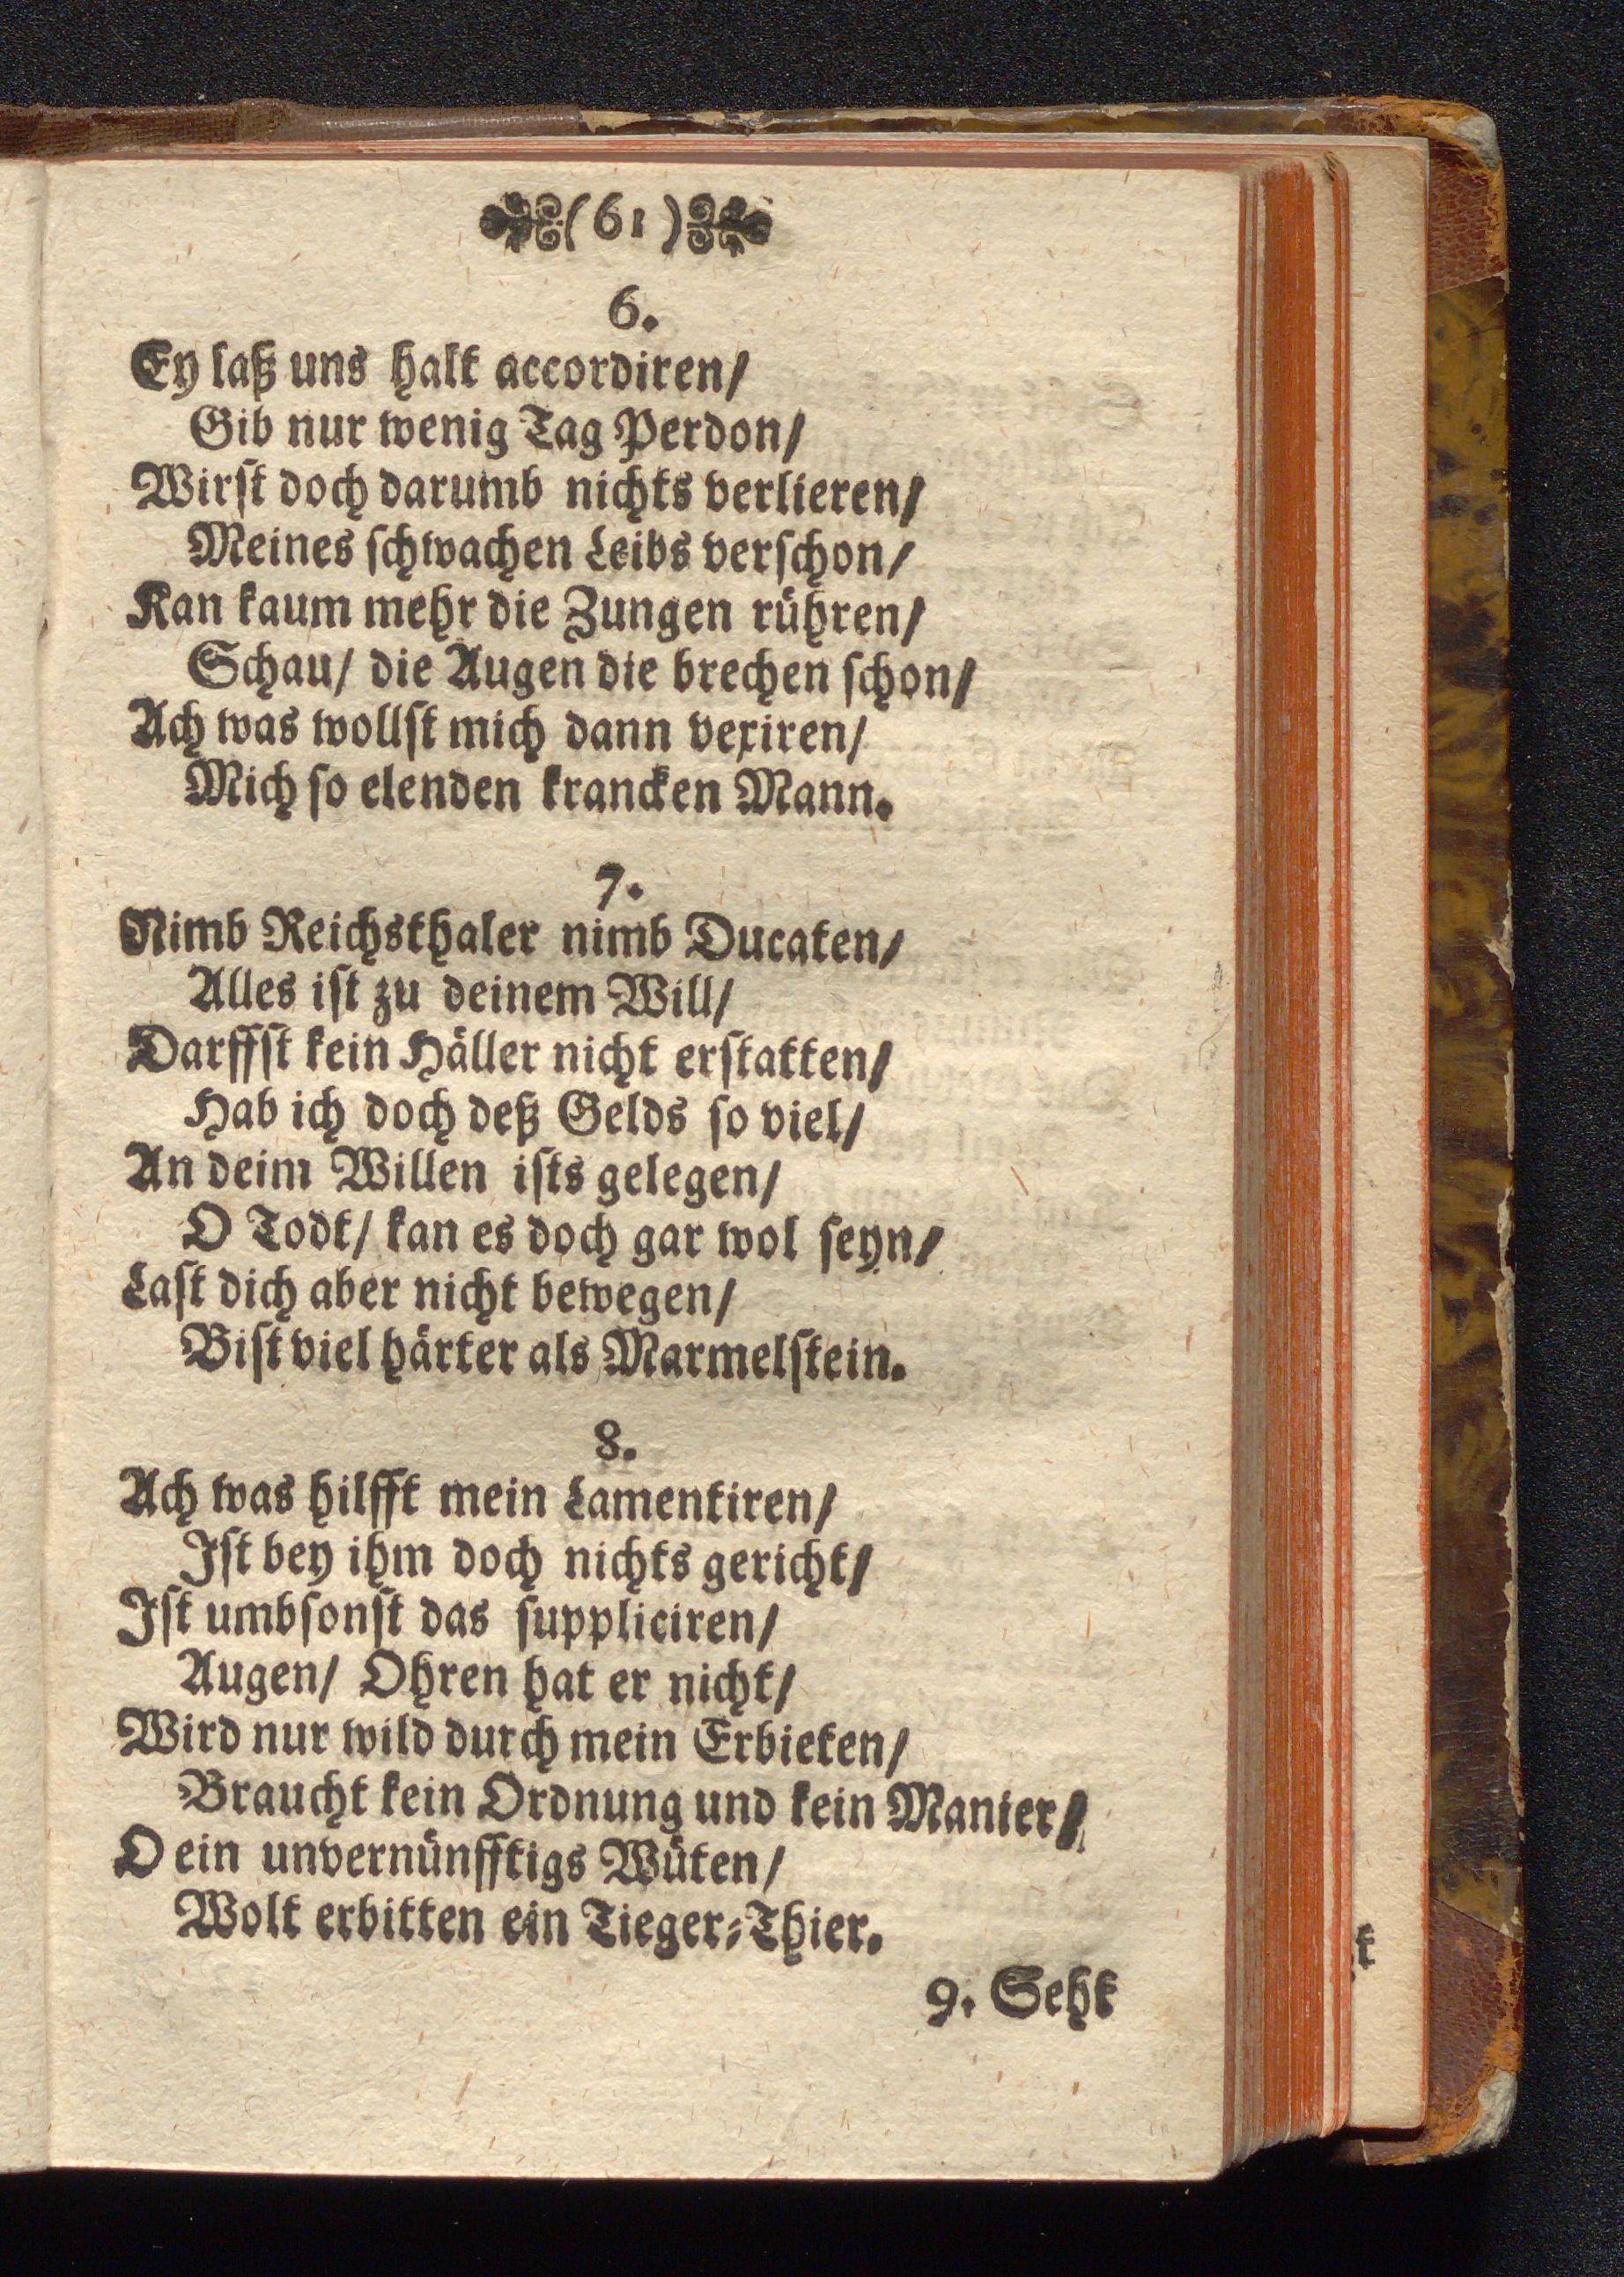 (61)
6.
Ey laß uns halt accordiren/
Gib nur wenig Tag Perdon/
Wirst doch darumb nichts verlieren/
Meines schwachen Leibs verschon/
Kan kaum mehr die Zungen rühren/
Schau/ die Augen die brechen schon/
Ach was wollst mich dann vexiren/
Mich so elenden krancken Mann.
7.
Nimb Reichsthaler nimb Ducaten/
Alles ist zu deinem Will/
Darffst kein Häller nicht erstatten/
Hab ich doch deß Gelds so viel/
An deim Willen ists gelegen/
O Todt/ kan es doch gar wol seyn/
Last dich aber nicht bewegen/
Bist viel härter als Marmelstein.
8.
Ach was hilfft mein Lamentiren/
Ist bey ihm doch nichts gericht/
Ist umbsonst das suppliciren/
Augen/ Ohren hat er nicht/
Wird nur wild durch mein Erbieten/
Braucht kein Ordnung und kein Manier/
O ein unvernünfftigs Wüten/
Wolt erbitten ein Tieger-Thier.
9. Seht